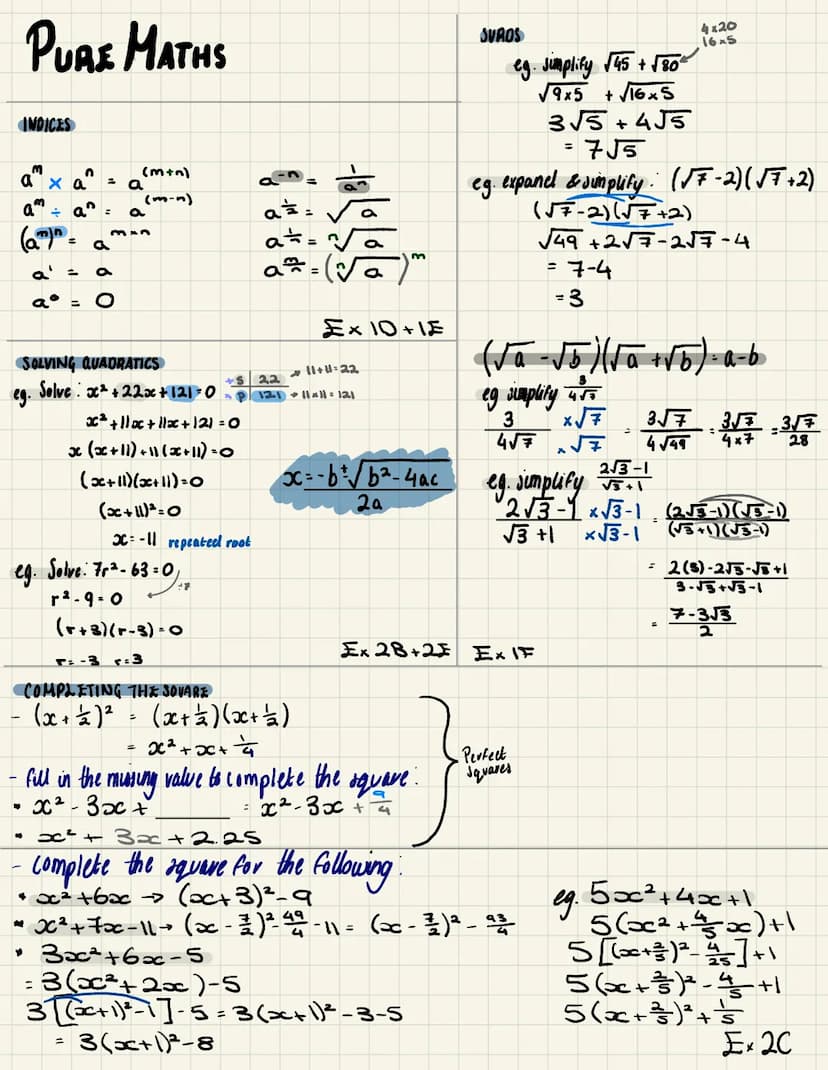 PURE MATHS
INDICES
aᵐ × aⁿ = a⁽ᵐ⁺ⁿ⁾
aᵐ ÷ aⁿ = a⁽ᵐ⁻ⁿ⁾
(aᵐ)ⁿ = aᵐˣⁿ
a¹ = a
a⁰ = 0
a⁻ⁿ = 1/aⁿ
a^½ = √a
a^(1/n) = ⁿ√a
a^(m/n) = (ⁿ√a)ᵐ
Ex 1D + 1E
SURDS
4x20
16x5
eg. simplify √45 + √80
√9x5 + √16x5
3√5 + 4√5
= 7√5
eg. expand & simplify: (√7-2)(√7+2)
(√7-2)(√7+2)
√49 + 2√7 - 2√7 - 4
= 7-4
= 3
(√a - √b)(√a + √b) = a-b
eg simplify 3/4√7
3/4√7 x√7/x√7 = 3√7/4√49 = 3√7/4x7 = 3√7/28
eg. simplify 2√3-1/√3+1
2√3-1/√3+1 x√3-1/x√3-1 = (2√3-1)(√3-1)/(√3+1)(√3-1)
= 2(3)-2√3-√3+1/3-√3+√3-1
= 7-3√3/2
Ex 1F
SOLVING QUADRATICS
eg. Solve: x²+22x+121=0
+ S 22 → 11+11=22
× P 121 → 11x11=121
x²+11x+11x+121=0
x(x+11)+11(x+11)=0
(x+11)(x+11)=0
(x+11)²=0
x=-11 repeated root
x = -b±√b²-4ac/2a
eg. Solve: 7r²-63=0
÷7
r²-9=0
(r+3)(r-3)=0
r=-3 r=3
Ex 2B + 2E
COMPLETING THE SQUARE
- (x+½)² = (x+½)(x+½)
= x²+x+¼
- fill in the missing value to complete the square:
• x²-3x+______ = x²-3x+9/4
• x²+3x+2.25
Perfect
Squares
- Complete the square for the following:
• x²+6x → (x+3)²-9
• x²+7x-11 → (x-7/2)²-49/4-11 = (x-7/2)²-93/4
• 3x²+6x-5
= 3(x²+2x)-5
3[(x+1)²-1]-5 = 3(x+1)²-3-5
= 3(x+1)²-8
eg. 5x²+4x+1
5(x²+4/5x)+1
5[(x+2/5)²-4/25]+1
5(x+2/5)²-4/5+1
5(x+2/5)²+1/5
Ex 2C